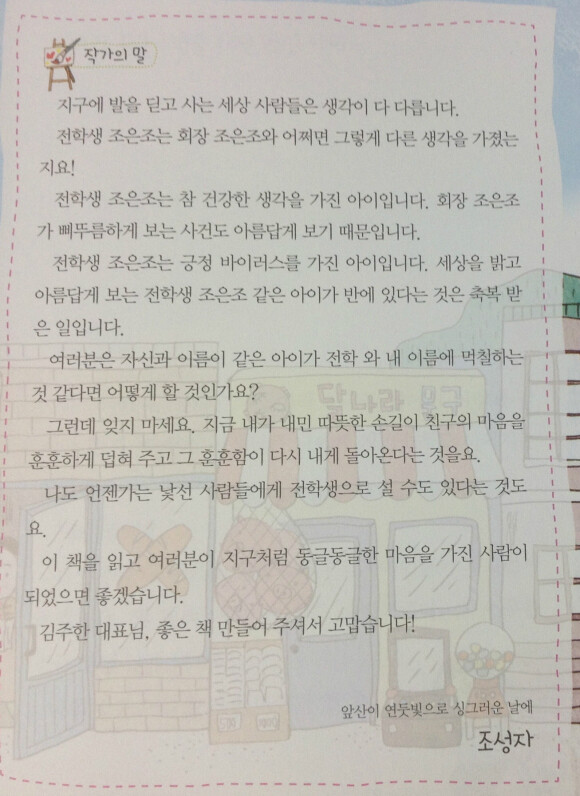 작가의 말
지구에 발을 딛고 사는 세상 사람들은 생각이 다 다릅니다.
전학생 조은조는 회장 조은조와 어쩌면 그렇게 다른 생각을 가졌는
지요!
전학생 조은조는 참 건강한 생각을 가진 아이입니다. 회장 조은조
가 삐뚜름하게 보는 사건도 아름답게 보기 때문입니다.
전학생 조은조는 긍정 바이러스를 가진 아이입니다. 세상을 밝고
아름답게 보는 전학생 조은조 같은 아이가 반에 있다는 것은 축복 받
은 일입니다.
여러분은 자신과 이름이 같은 아이가 전학 와 내 이름에 먹칠하는
것 같다면 어떻게 할 것인가요?
그런데 잊지 마세요. 지금 내가 내민 따뜻한 손길이 친구의 마음을
훈훈하게 덥혀 주고 그 훈훈함이 다시 내게 돌아온다는 것을요.
나도 언젠가는 낯선 사람들에게 전학생으로 설 수도 있다는 것도
요.
이 책을 읽고 여러분이 지구처럼 동글동글한 마음을 가진 사람이
되었으면 좋겠습니다.
김주한 대표님, 좋은 책 만들어 주셔서 고맙습니다!
앞산이 연둣빛으로 싱그러운 날에
조성자